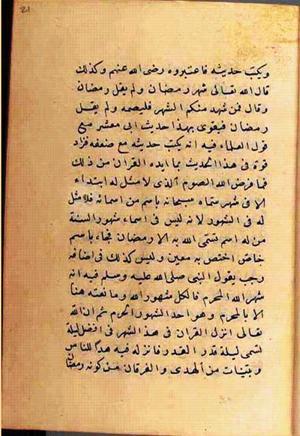 21
ويكتب حديثه فاعتبروه رضى الله عنهم وكذلك
قال الله تعالى شهر رمضان ولم يقل رمضان
وقال فمن شهد منكم الشهر فليصمه ولم يقل
رمضان فيقوى بهذا حديث ابى معشر مع
قول العلماء فيه انه يكتب حديثه مع ضعفه فزاد
قوة فى هذا الحديث بما ايده القران من ذلك
فما فرض الله الصوم الذى لا مثل له ابتداء
الا فى شهر سماه سبحانه باسم من اسمائه فلا مثل
له فى الشهور لانه ليس فى اسماء شهور السنة
من له اسم تسمى الله به الا رمضان فجاء باسم
خاص اختص به معين وليس كذلك فى اضافة
رجب يقول النبى صلى الله عليه وسلم فيه انه
شهر الله المحرم فالكل شهور الله وما نعته هنا
الا بالمحرم وهو احد الشهور الحرم ثم ان الله
تعالى انزل القران فى هذا الشهر فى افضل ليلة
تسمى ليلة قدر القدر فانزله فيه هدى للناس
وبينات من الهدى والفرقان من كونه رمضان